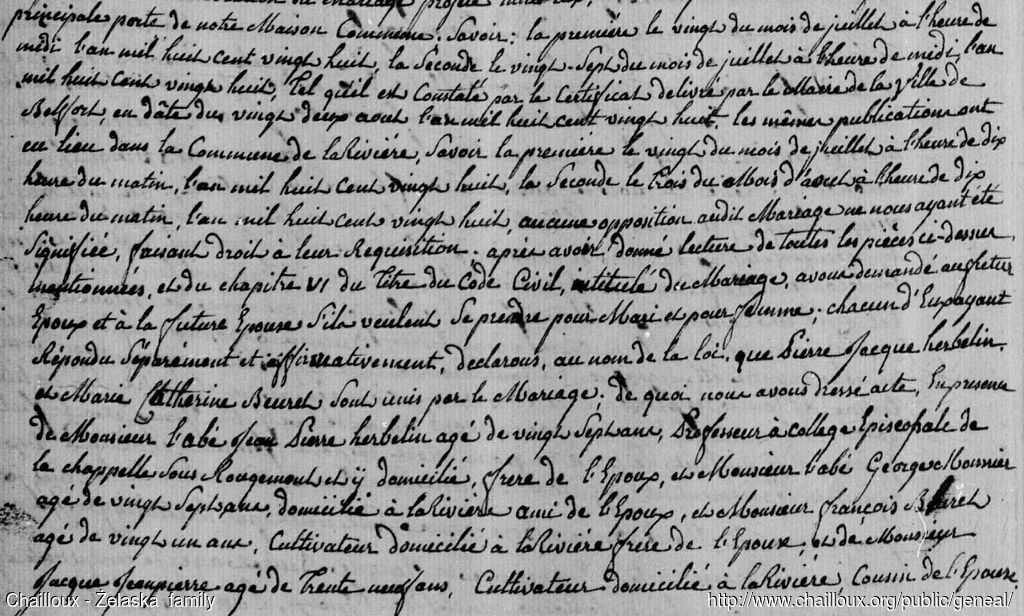 principale porte de notre Maison Commune. Savoir: la première le vingt du mois de juillet à l'heure de
midi l'an mil huit cent vingt huit, la Seconde le vingt-Sept du mois de juillet à l'heure de midi, l'an
mil huit Cent vingt huit, Tel qu'il est Constaté par le Certificat delivré par le Maire de la Ville de
Belfort, en dâte du vingt deux aout l'an mil huit cent vingt huit. les mêmes publications ont
eu lieu dans la Commune de la Rivière, Savoir la première le vingt du mois de juillet à l'heure de dix
heure du matin, l'an mil huit Cent vingt huit, la Seconde le Trois du Mois d'aout à l'heure de dix
heure du matin, l'an mil huit Cent vingt huit, aucune opposition audit Mariage ne nous ayant été
Signifiée, faisant droit à leur Requisition. après avoir donné lecture de toutes les pièces ci-dessus
mentionnées, et du chapitre VI du Titre du Code Civil, intitulé du Mariage, avons demandé au futur
Epoux et à la future Epouse S'ils veulent Se prendre pour Mari et pour femme; chacun d'Eux ayant
Répondu Séparément et affirmativement, declarons, au nom de la loi, que Pierre Jacque herbelin,
et Marie Catherine Beuret Sont unis par le Mariage. de quoi nous avons dressé acte, En presence
de Monsieur l'abé Jean Pierre herbelin agé de vingt Sept ans, Professeur à College Episcopale de
la chappelle Sous Rougemont et ÿ domicilié, frere de l'Epoux, et Monsieur l'abé George Monnier
agé de vingt Sept ans, domicilié à la Rivière ami de l'Epoux, et Monsieur françois Beuret
agé de vingt un ans, Cultivateur domicilié à la Rivière frere de l'Epouse, et de Monsieur
Jacque Jeanpierre agé de Trente neuf ans, Cultivateur domicilié à la Rivière Cousin de l'Epouse
Chailloux - Żelaska family
http://www.chailloux.org/public/geneal/